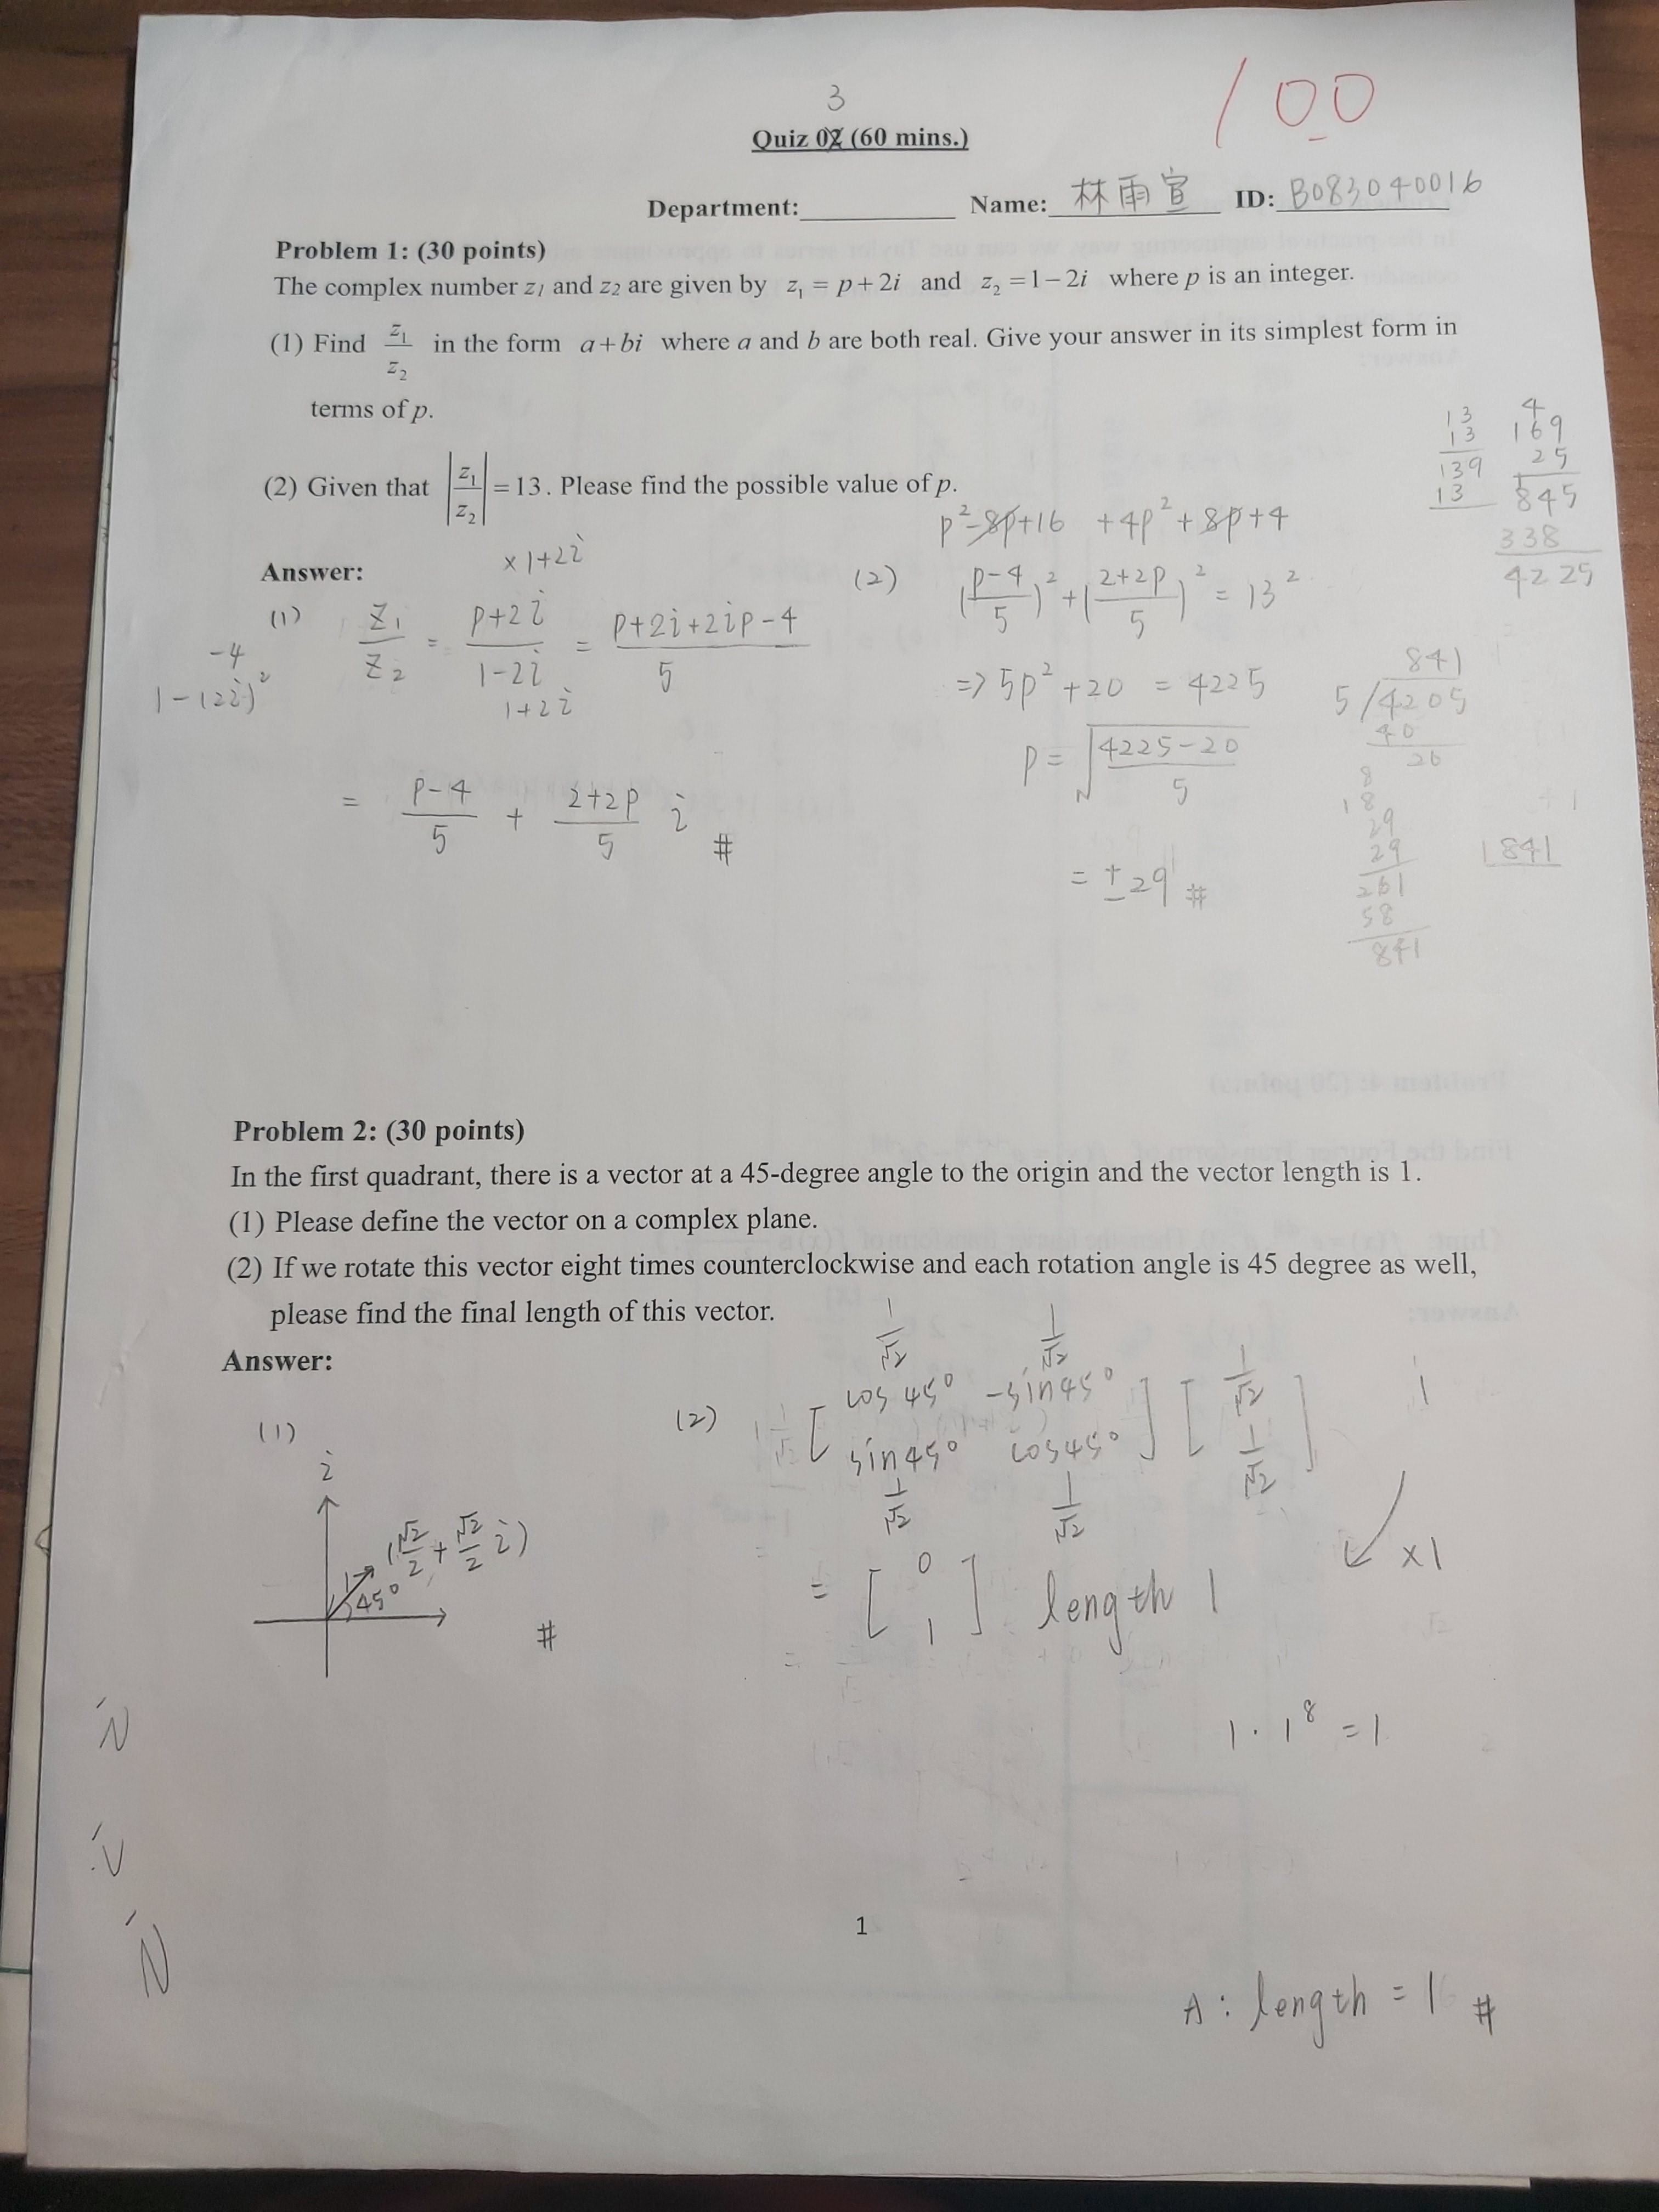 100
3
Quiz 02 (60 mins.)
Department: Name: 林雨宣 ID: B083040016
Problem 1: (30 points)
The complex number z1 and z2 are given by z1 = p + 2i and z2 = 1 − 2i where p is an integer.
(1) Find z1/z2 in the form a + bi where a and b are both real. Give your answer in its simplest form in
terms of p.
13
13
139
13
4
169
25
845
338
4225
(2) Given that |z1/z2| = 13. Please find the possible value of p.
p²-8p+16 +4p²+8p+4
Answer:
×1+2i
(1) Z1/Z2 = p+2i/1-2i = p+2i+2ip-4/5
1+2i
-4
1-(2i)²
= p-4/5 + 2+2p/5 i #
(2) (p-4/5)² + (2+2p/5)² = 13²
=> 5p²+20 = 4225
p = √4225-20/5
= ±29 #
841
5/4205
40
20
8
18
29
29
261
58
841
1841
Problem 2: (30 points)
In the first quadrant, there is a vector at a 45-degree angle to the origin and the vector length is 1.
(1) Please define the vector on a complex plane.
(2) If we rotate this vector eight times counterclockwise and each rotation angle is 45 degree as well,
please find the final length of this vector.
Answer:
(1)
i
1
45°
(√2/2 + √2/2 i)
#
(2)
1/√2 1/√2
[cos 45° -sin45°] [1/√2]
[sin45° cos45°] [1/√2]
1/√2 1/√2
1
×1
= [0 1] length 1
1 · 1⁸ = 1
1
A: length = 1 #